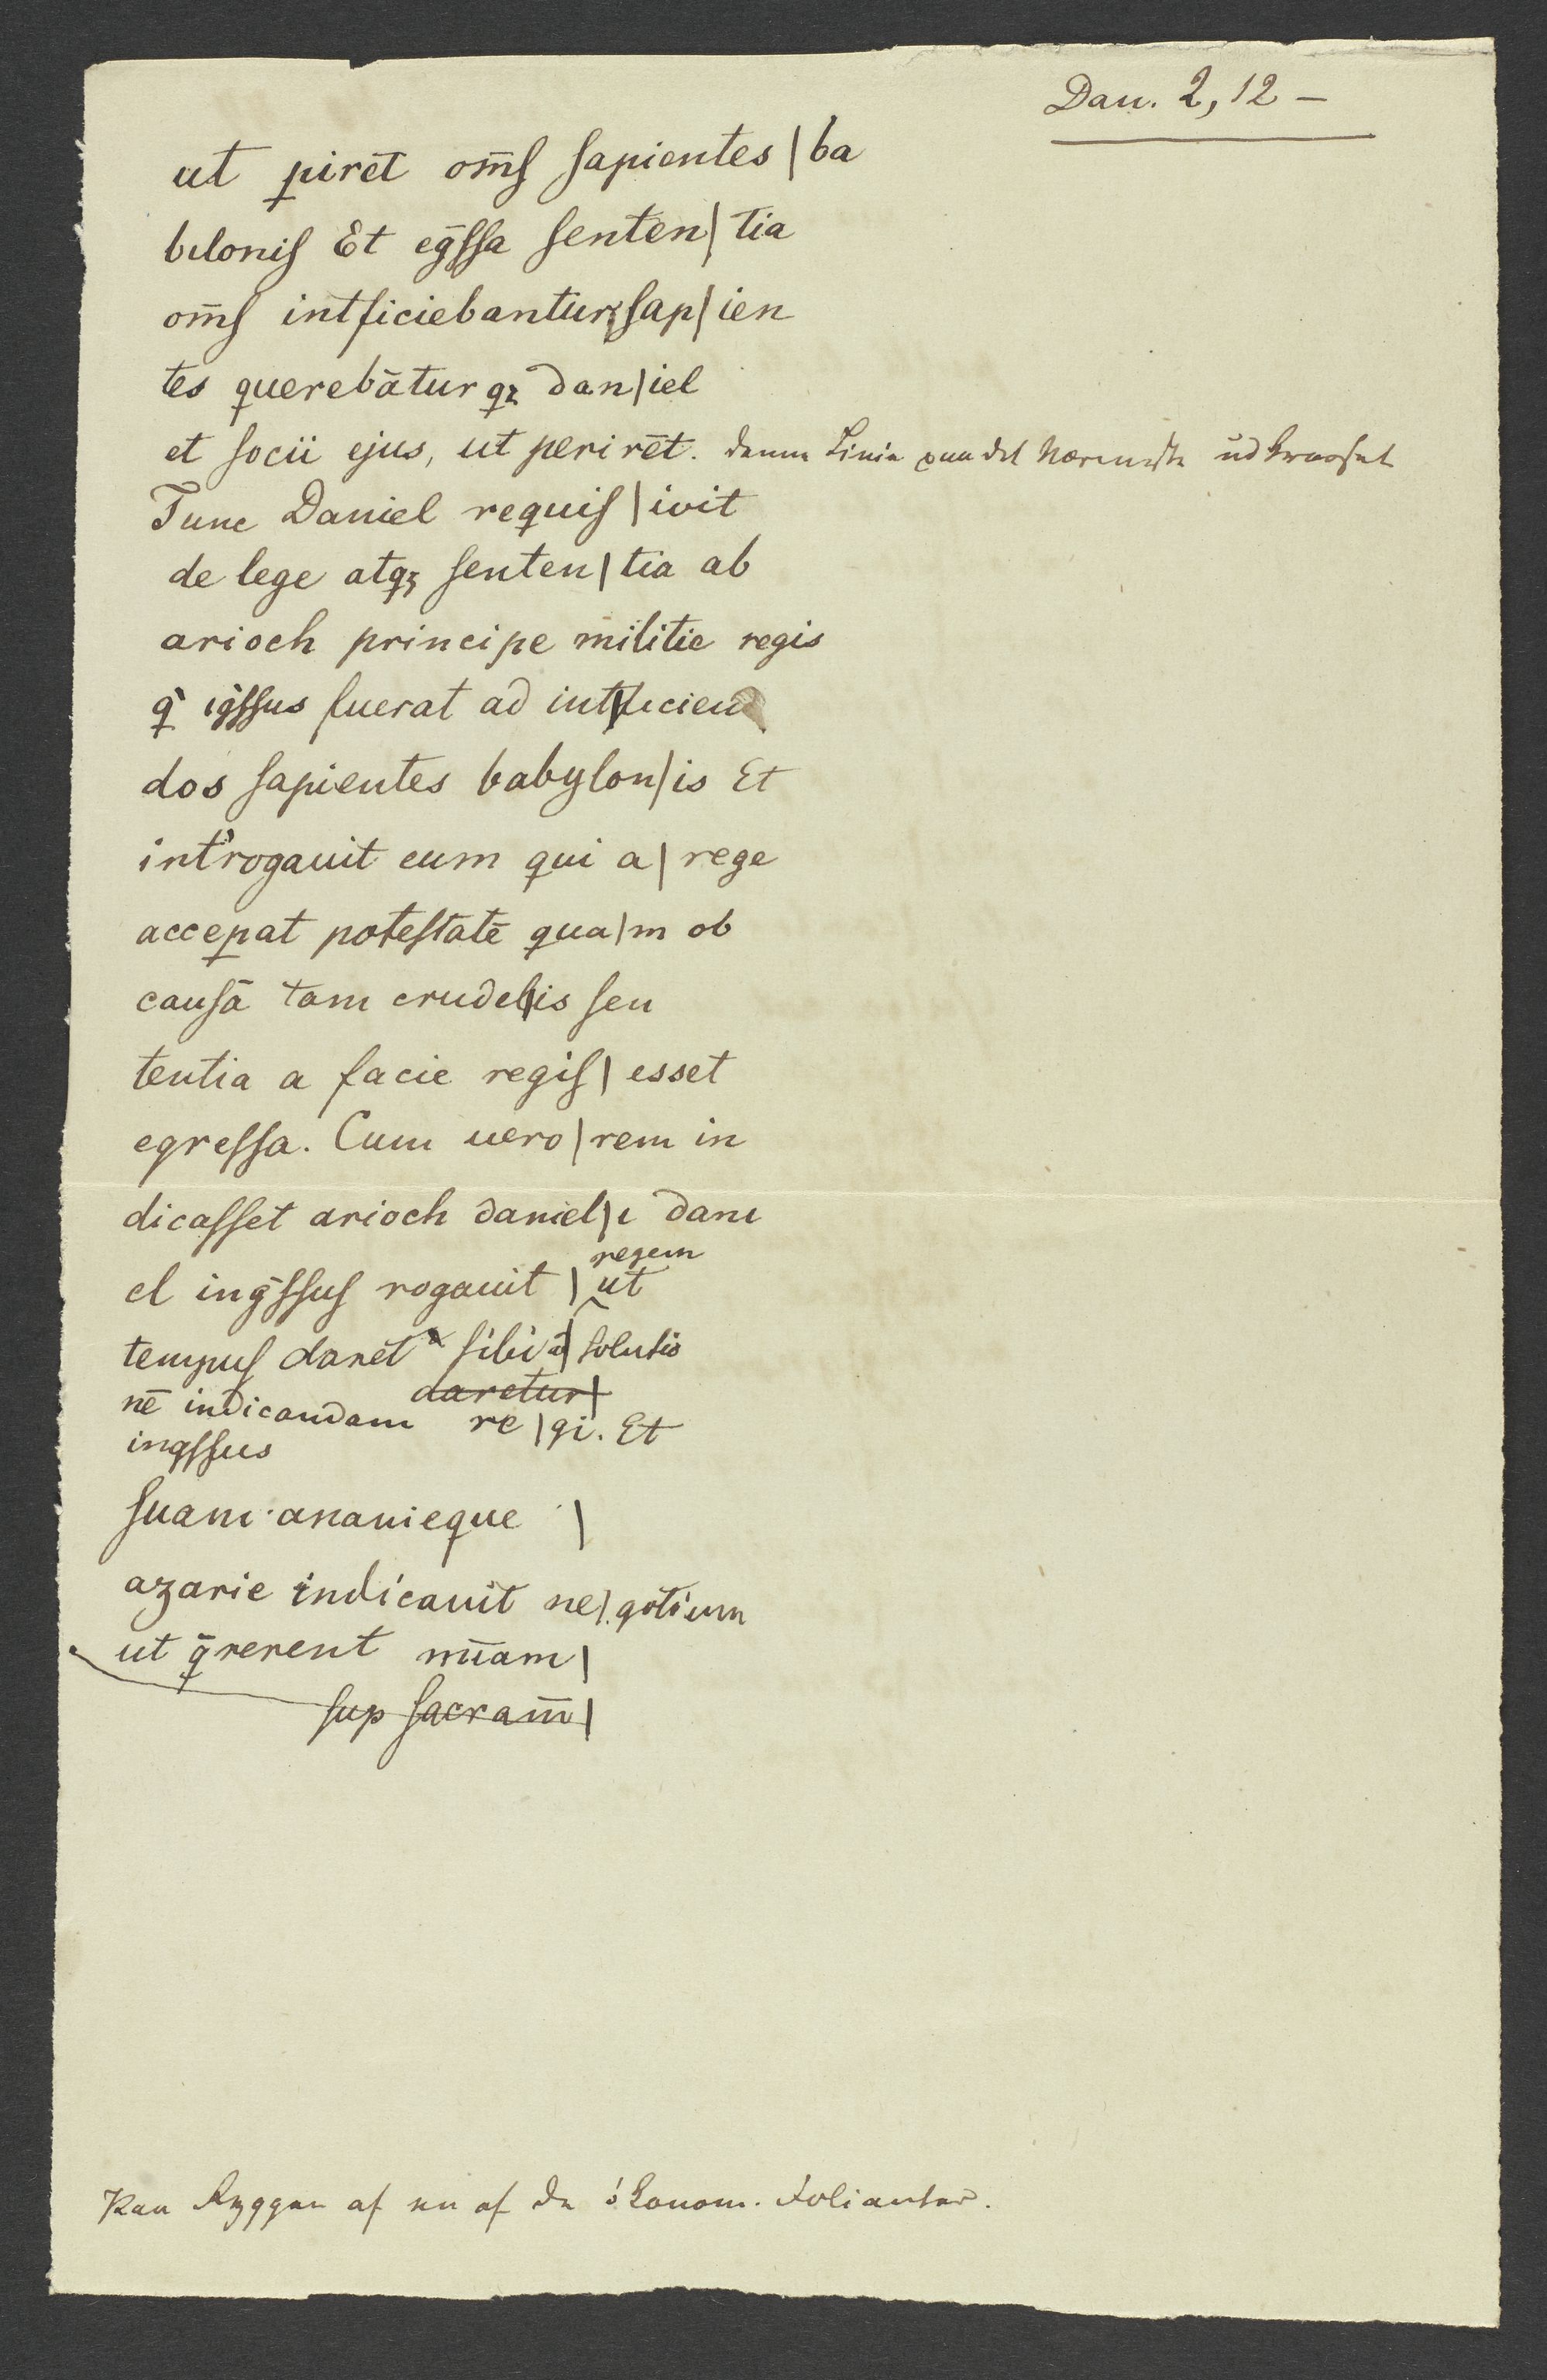 Dan. 2, 12 –
ut ꝑiret̄ om̄s sapientes | ba
bilonis Et eg̅ssa senten | tia
om̄s intficiebantur sap | ien
tes querebātur qꝫ dan | iel
et socii ejus, ut perirēt. denne Linie paa det nærmeste
Tunc Daniel requis | ivit
de lege atqꝫ senten | tia ab
arioch principe militie regis
q̇ ig̅ssus fuerat ad int | ficien
dos sapientes babylon | is Et
int'rogauit eum qui a | rege
acceꝑat potestātē qua | m ob
causā tam crudel | is sen
tentia a facie regis | esset
egressa. Cum uero | rem in
dicasset arioch daniel | ı danı
el ing̅ssus rogauit | ut regem
tempus daret sibi ad | solutio
daretur |
nē indicandam re | gi. Et
ingssus
suam ananieque |
azarie indicauit ne | gotium
ut q̄rerent mīiam |
sup sacram̄ |
Paa Ryggen af en af de økonom. Folianter.